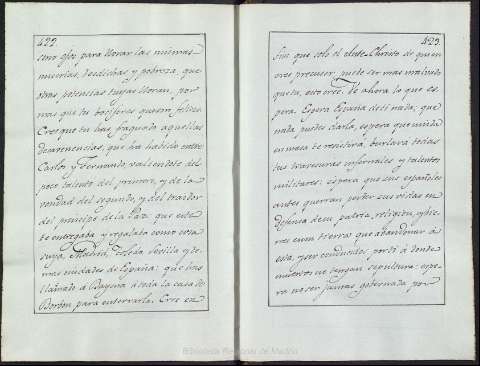 422
otros ojos para llorar las mismas
muertes, desdichas y pobreza, que
otras potencias tuyas lloran, por
mas que tus bociferes quieren felices.
Crees que tu has fraguado aquellas
desavenencias, que ha habido entre
Carlos y Fernando, valiendote del
poco talento del primero, y de la
bondad del segundo, y del traidor
del principe de la Paz que este
te entregaba y regalaba como cosa
suya, Madrid, Toledo Sevilla y de-
mas ciudades de España; que has
llamado á Bayona á toda la casa de
Borbon para enterrarla. Eres en
423
fin que solo el Ante-Christo de quien
eres precursor, puede ser mas malvado
que tu, esto eres. Ve ahora lo que es-
pera. Espera España de ti nada; que
nada puedes darla, espera que unida
en masa te resistirá, burlará todas
tus travesuras infernales y talentos
militares: espera que sus españoles
antes querran perder sus vidas en
defensa de su patria, religion, y bie-
nes en su tierra que abandonar á
esta, y ser conducidos por ti á donde
muertos no tengan sepultura: espe-
ra no ser jamas gobernada por
Biblioteca Regional de Madrid